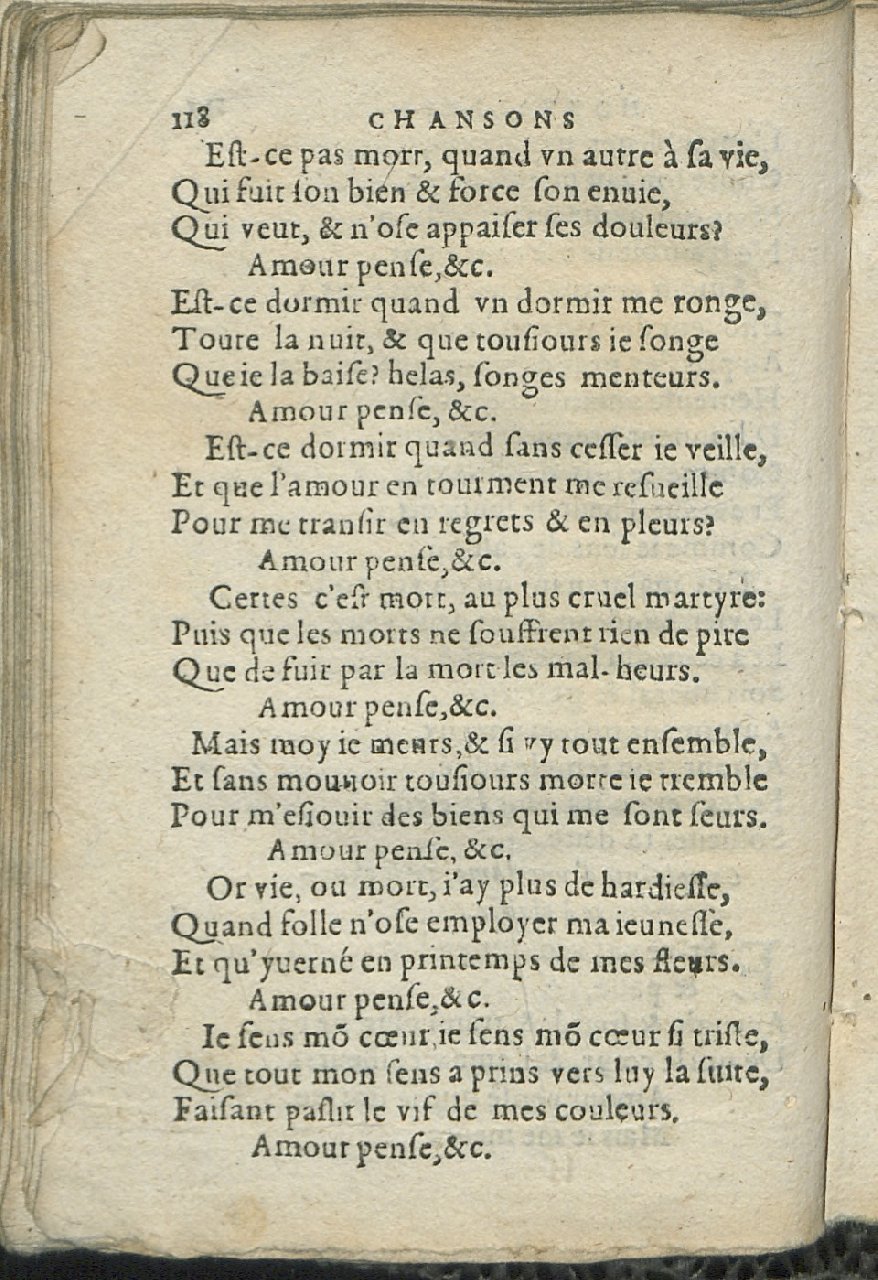 118 CHANSONS
Eſt-ce pas mort, quand vn autre à ſa vie,
Qui fuit ſon bien & force ſon enuie,
Qui veut, & n'oſe appaiſer ſes douleurs?
Amour penſe,&c.
Eſt-ce dormir quand vn dormir me ronge,
Toute la nuit, & que touſiours ie ſonge
Que ie la baiſe? helas, ſonges menteurs.
Amour penſe, &c.
Eſt-ce dormir quand ſans ceſſer ie veille,
Et que l'amour en tourment me reſueille
Pour me tranſir en regrets & en pleurs?
Amour penſe,&c.
Certes c'eſt mort, au plus cruel martyre:
Puis que les morts ne ſouffrent rien de pire
Que de fuir par la mort les mal-heurs.
Amour penſe,&c.
Mais moy ie meurs,& ſi vy tout enſemble,
Et ſans mouuoir touſiours morte ie tremble
Pour m'eſiouir des biens qui me ſont ſeurs.
Amour penſe, &c.
Or vie, ou mort, i'ay plus de hardieſſe,
Quand folle n'oſe employer ma ieuneſſe,
Et qu'yuerné en printemps de mes fleurs.
Amour penſe,&c.
Ie ſens mõ cœur,ie ſens mõ cœur ſi triſte,
Que tout mon ſens a prins vers luy la ſuite,
Faiſant paſlir le vif de mes couleurs.
Amour penſe,&c.